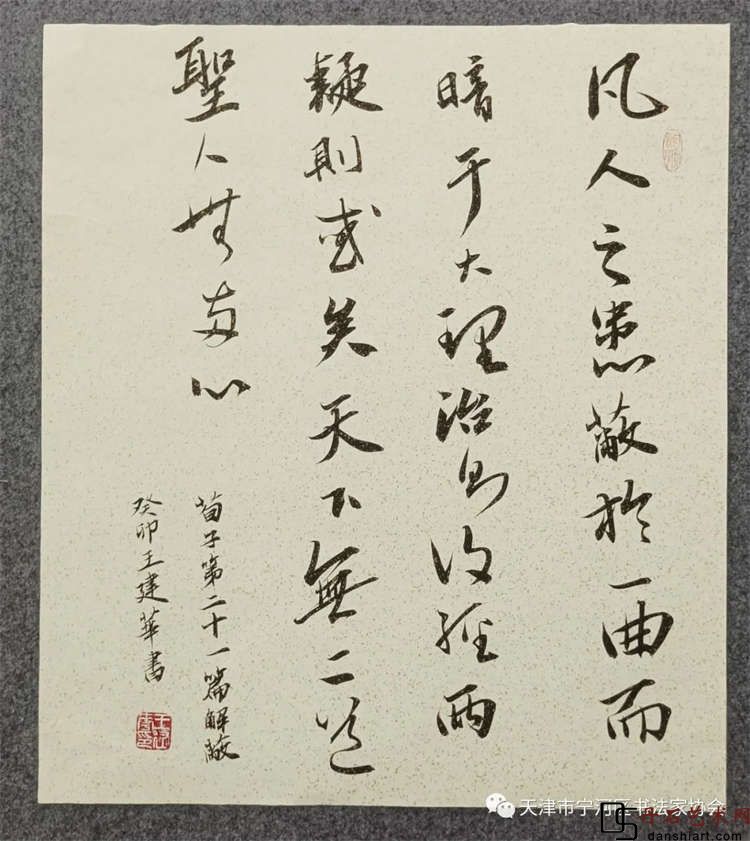 凡人之患蔽於一曲而
暗于大理治則復經兩
疑則或矣天下無二道
聖人無兩心
荀子第二十一篇解蔽
癸卯王建華書
天津市宁河区书法家协会
丹石艺术网
danshiart.com